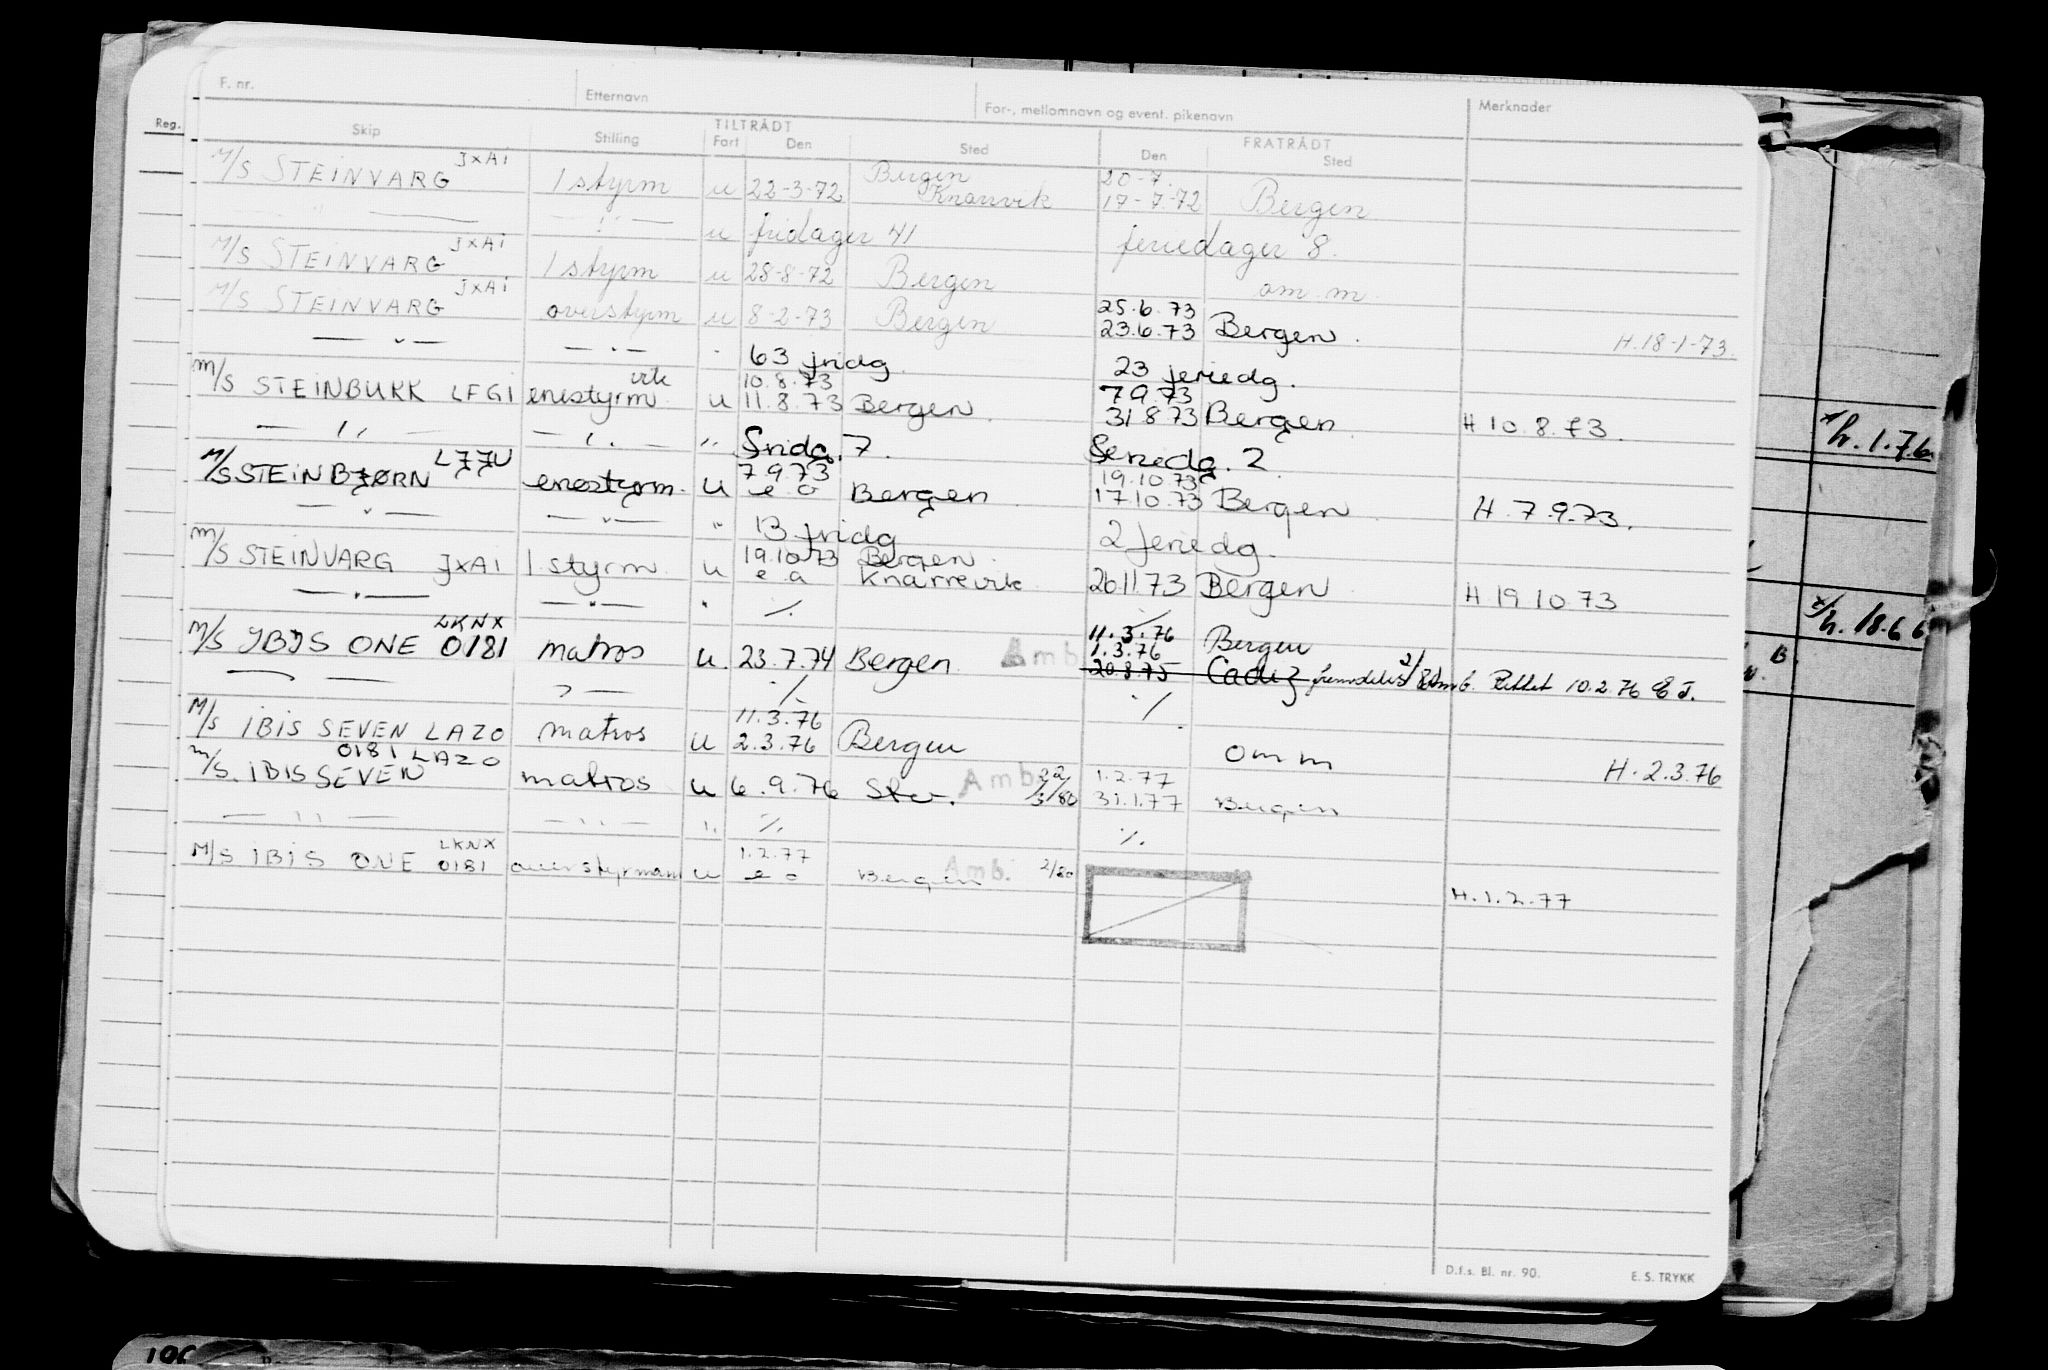 F. nr. Etternavn For-, mellomnavn og event. pikenavn Merknader
Reg.
TILTRÅDT FRATRÅDT
Skip Stilling Fart Den Sted Den Sted
M/S STEINVARG JXAI 1 styrm u 22-3-72 Bergen Knarrvik 20-7. 17-7-72 Bergen
— " — — " — u fridager 41 feriedager 8.
M/S STEINVARG JXAI 1 styrm u 28-8-72 Bergen om. m.
M/S STEINVARG JXAI overstyrm u 8-2-73 Bergen 25.6.73 23.6.73 Bergen. H.18-1-73.
— " — — " — " 63 fridg. 23 feriedg.
M/S STEINBUKK LFGI enestyrm u 10.8.73 11.8.73 Bergen. 7.9.73 31.8.73 Bergen H 10.8.73.
— " — — " — " Fridg. 7. Feriedg. 2
M/S STEINBJØRN LJJU enestyrm. u 7.9.73 e o Bergen 19.10.73 17.10.73 Bergen H. 7.9.73.
— " — — " — " 13 fridg 2 feriedg.
M/S STEINVARG JXAI 1. styrm u 19.10.73 e a Bergen. Knarrevik 26.11.73 Bergen H 19.10.73
— " — — " — " ./. ./.
M/S IBIS ONE LKNX 0181 matros u. 23.7.74 Bergen. Amb 11.3.76 1.3.76 Bergen
20.8.75 Cadiz Rettet 10.2.76
— — " — ./. ./.
M/S IBIS SEVEN LAZO 0181 matros u 11.3.76 2.3.76 Bergen omm H. 2.3.76
M/S. IBIS SEVEN LAZO matros u 6.9.76 Amb 1.2.77 31.1.77 Bergen
— " — — " — " ./. ./.
M/S IBIS ONE LKNX 0181 overstyrmann u 1.2.77 e o Bergen Amb. 2/80 H.1.2.77
h. 1.7.6
h. 18.6 6
B.
D.f.s. Bl. nr. 90. E. S. TRYKK